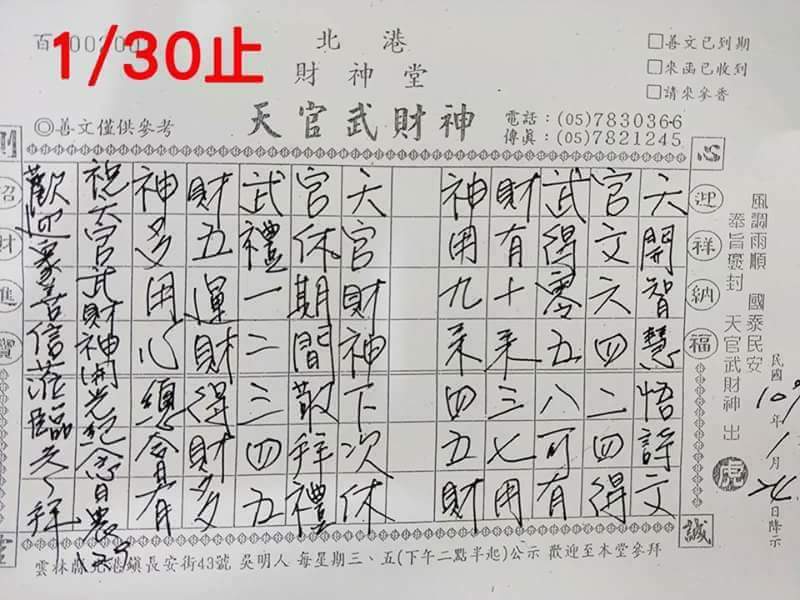 1/30止
北港
財神堂
天官武財神
◎善文僅供參考
電話：(05)7830366
傳真：(05)7821245
□善文已到期
□來函已收到
□請來參香
風調雨順 國泰民安
奉旨褒封 天官武財神 出
民國109年1月24日降示
心
迎祥納福
誠
天開智慧悟詩文
官文六四二四得
武得零五八可有
財有十來三七用
神用九來四五財
天官財神下次休
官休期間敬拜禮
武禮一二三四五
財五運財得財多
神多用心總會有
祝天官武財神開光紀念日農
歡迎眾善信蒞臨參拜
招財進寶
雲林縣北港鎮長安街43號 吳明人 每星期三、五(下午二點半起)公示 歡迎至本堂參拜